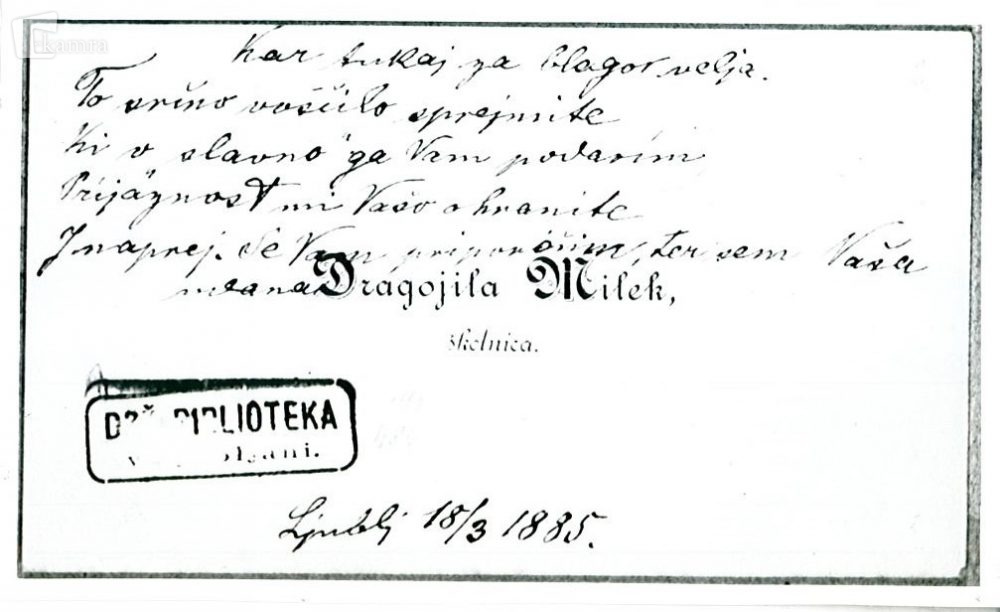 kamra
Kar tukaj za blagor velja.
To srčno voščilo sprejmite
Ki v slavno ga Vam podarim
Prijaznost mi Vašo ohranite
Inaprej. Se Vam priporočim, ter sem Vaša
vdana
Dragojila Milek,
BIBLIOTEKA
Ljublj 18/3 1885.